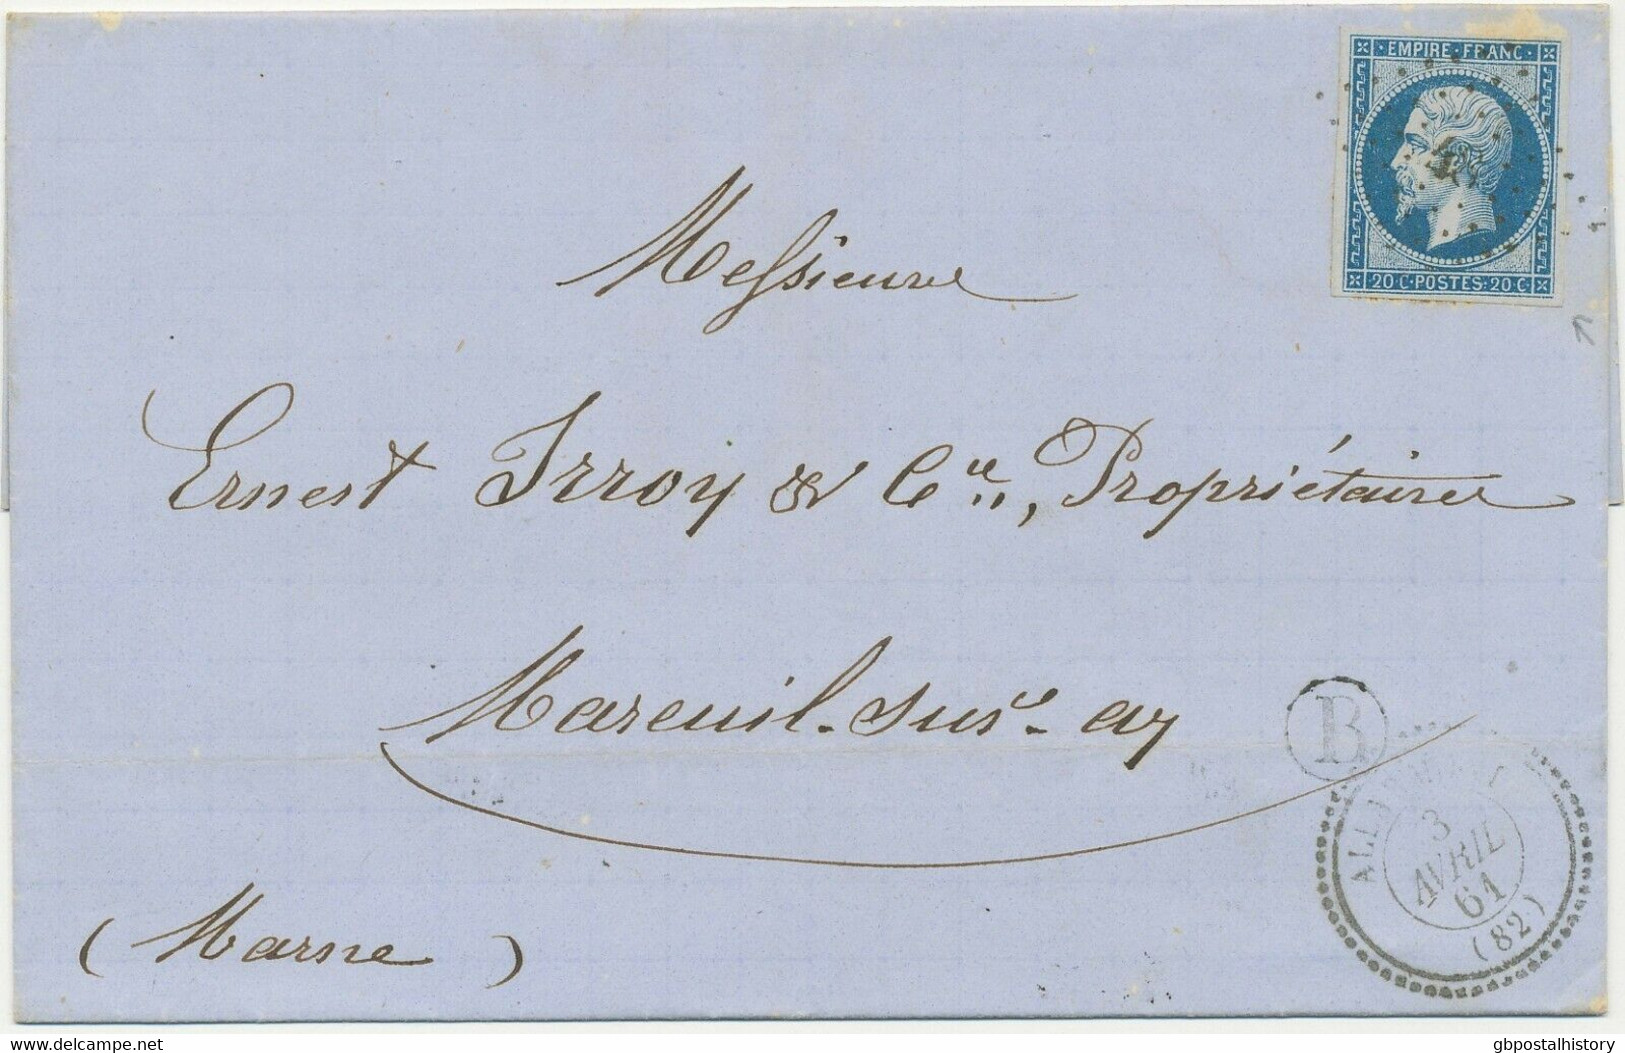 ·EMPIRE·FRANC·
20 C·POSTES·20 C
Messieurs
Ernest Irroy & Cie, Propriétaires
Mareuil-sur-ay
B
3
AVRIL
61
(82)
(Marne)
www.delcampe.net
gbpostalhistory